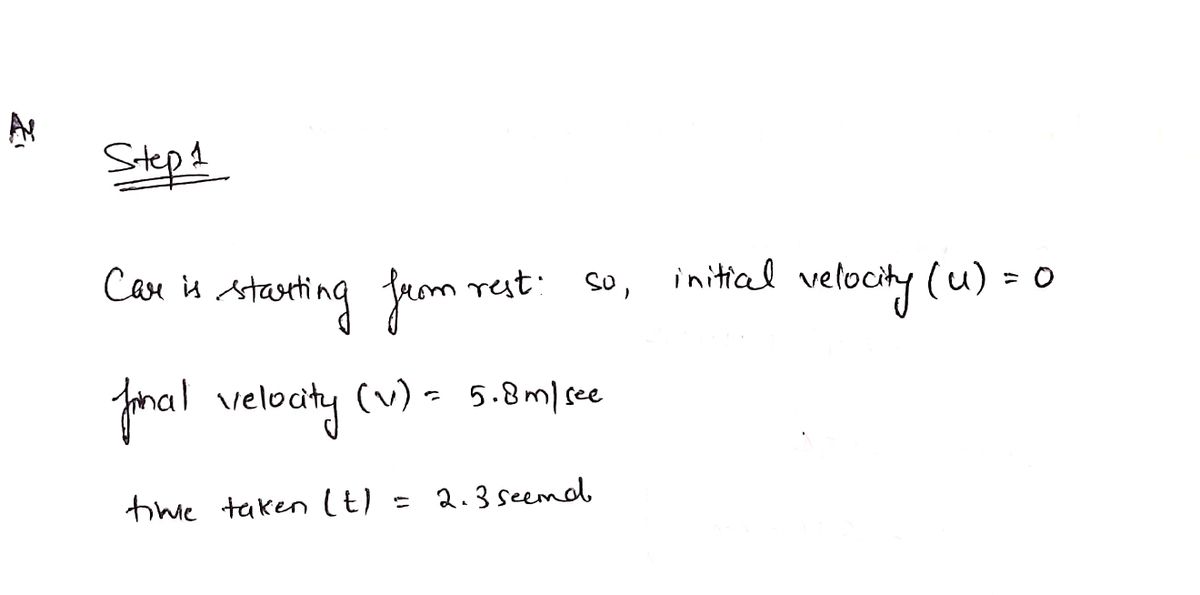 Step 1
Car is starting from rest: so, initial velocity (u) = 0
final velocity (v) = 5.8m/sec
time taken (t) = 2.3 second